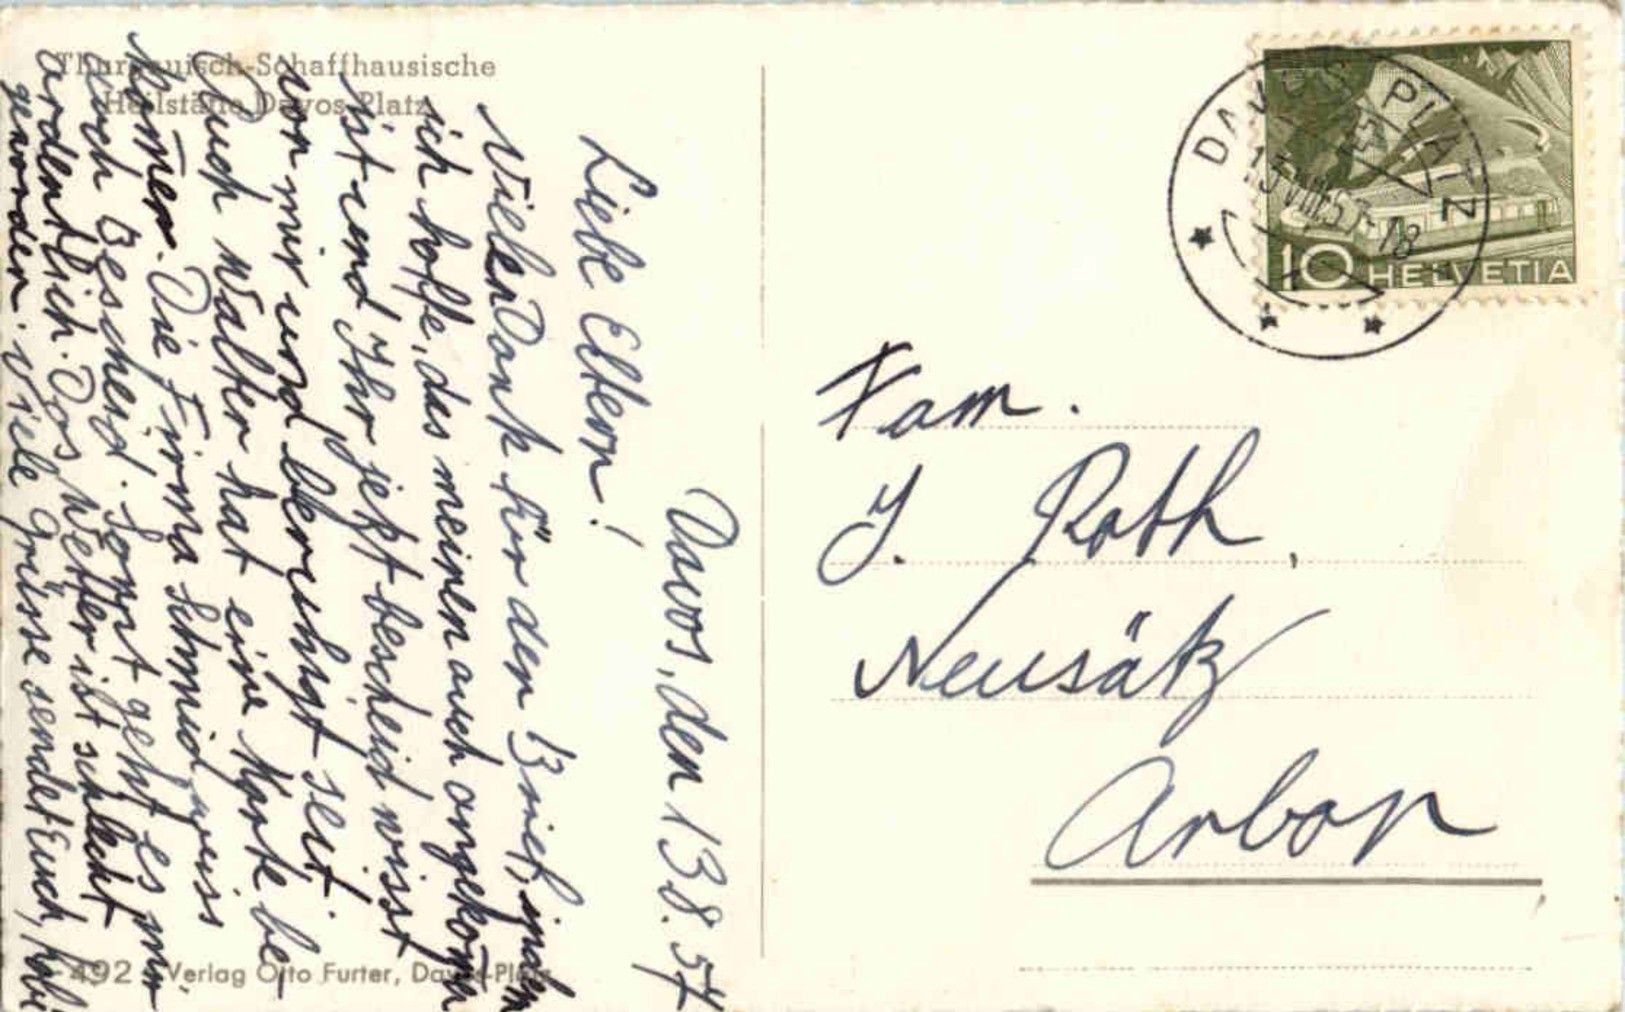 Thurgauisch-Schaffhausische
Heilstätte Davos-Platz
Davos, den 13.8.57
Liebe Eltern!
Vielen Dank für den Brief, indem
ich hoffe, das meinen auch angekom̅en
ist und Ihr jetzt bescheid wisst
von mir und beruhigt seit.
Auch Walter hat eine Karte be-
kom̅en. Die Firma Schmid weiss
auch Bescheid. Sonnt geht es mir
ordentlich. Das Wetter ist schlecht
geworden. Viele Grüsse sendet Euch,
492 Verlag Otto Furter, Davos-Platz
DAVOS PLATZ
13.VIII.57-18
10 HELVETIA
Fam.
J. Roth,
Neusätz
Arbon